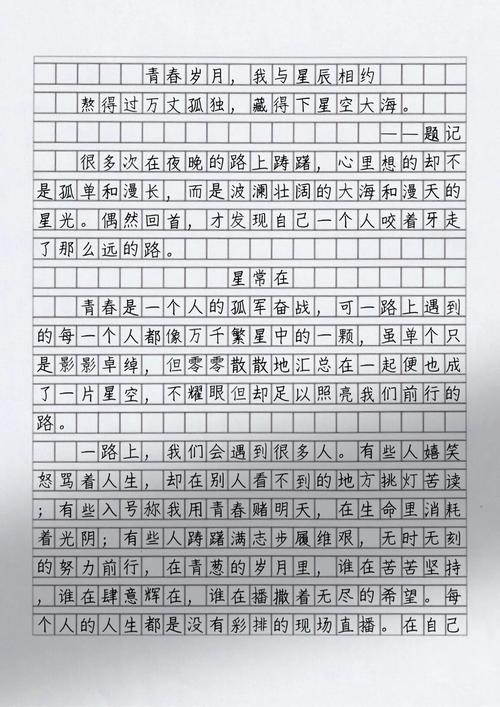 青春岁月，我与星辰相约
熬得过万丈孤独，藏得下星空大海。
——题记
很多次在夜晚的路上踌躇，心里想的却不
是孤单和漫长，而是波澜壮阔的大海和漫天的
星光。偶然回首，才发现自己一个人咬着牙走
了那么远的路。
星常在
青春是一个人的孤军奋战，可一路上遇到
的每一个人都像万千繁星中的一颗，虽单个只
是影影卓绰，但零零散散地汇总在一起便也成
了一片星空，不耀眼但却足以照亮我们前行的
路。
一路上，我们会遇到很多人。有些人嬉笑
怒骂着人生，却在别人看不到的地方挑灯苦读
；有些入号称我用青春赌明天，在生命里消耗
着光阴；有些人踌躇满志步履维艰，无时无刻
的努力前行，在青葱的岁月里，谁在苦苦坚持
，谁在肆意辉在，谁在播撒着无尽的希望。每
个人的人生都是没有彩排的现场直播。在自己